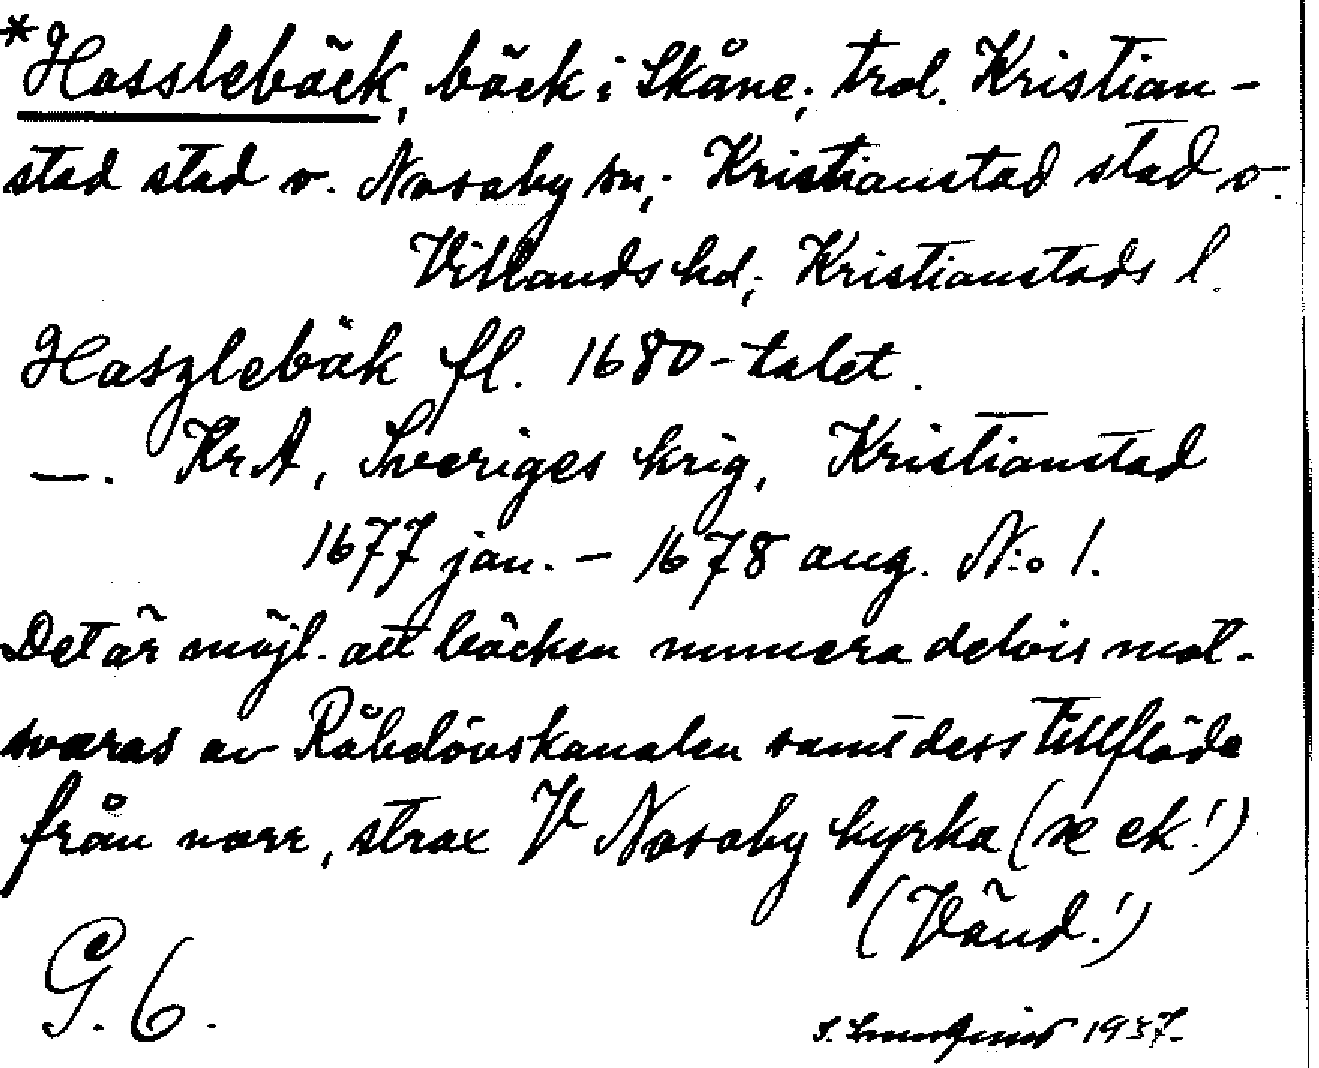 *Hasslebäck, bäck i Skåne; trol. Kristian-
stad stad o. Nosaby sn; Kristianstad stad o.
Villands hd; Kristianstads l.
Haszlebäk fl. 1680-talet.
—. KrA, Sveriges krig, Kristianstad
1677 jan. – 1678 aug. N:o 1.
Det är möjl. att bäcken numera delvis mot-
svaras av Råbelövskanalen samt dess tillflöde
från norr, strax V Nosaby kyrka (se ek!)
(Vänd!)
G. 6.
1937.